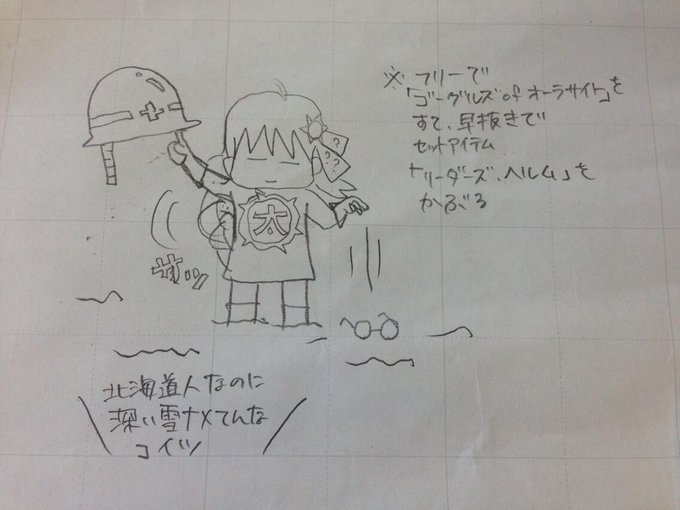 ※ フリーで
「ゴーグルズ of オーラサイト」を
すて、早抜きで
セットアイテム
「リーダーズ・ヘルム」を
かぶる
??
??
太
サッ
北海道人なのに
深い雪ナメてんな
コイツ